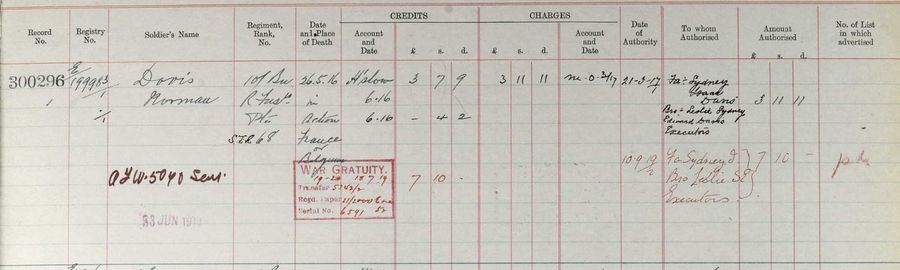 CREDITS CHARGES
Record No. Registry No. Soldier's Name Regiment, Rank, No. Date and Place of Death Account and Date £ s. d. £ s. d. Account and Date Date of Authority To whom Authorised Amount Authorised £ s. d. No. of List in which advertised
300296 E/199983/1 Davis 10/ Bn 26.5.16 H'slow 3 7 9 3 11 11 21-3-17 Far Sydney
1 Norman R Fusrs in 6.16 Isaac
Davis 3 11 11
Pte Action 6.16 - 4 2 Bror Leslie Sydney
Edward Davis
STK 68 France Executors
or
Belgium
10.9.19 Fa Sydney J 7 10 -
WAR GRATUITY.
19-20 18 7 19 7 10 -
Bro Leslie S E
Executors
Transfer
Regd. Paper
Serial No. 6591
AFW.5040 Sent.
JUN